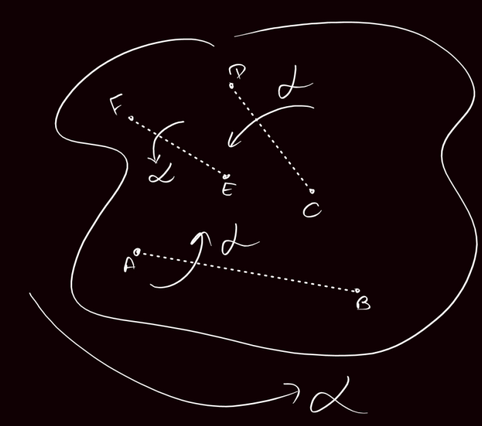 D
α
F
α
E
C
α
A
B
α